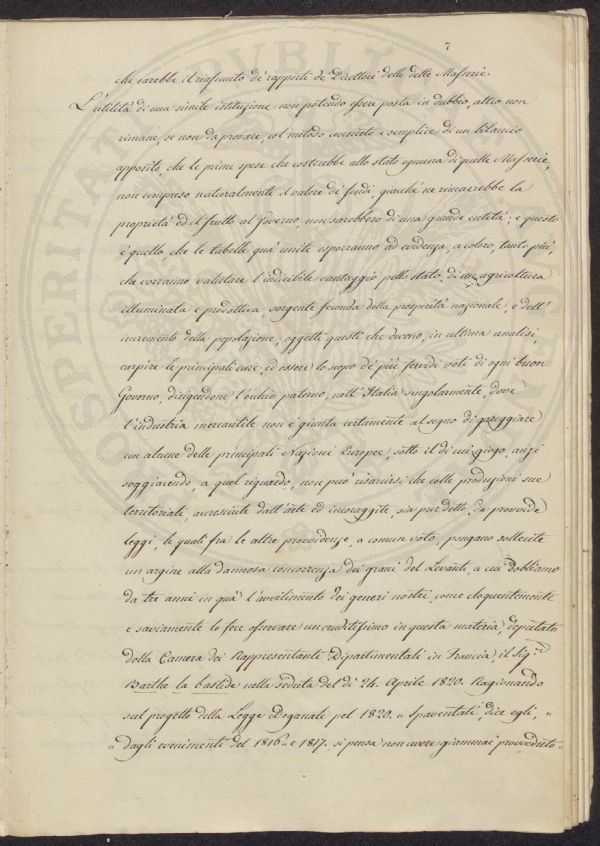 7
che sarebbe il riassunto de' rapporti de' Direttori delle dette Masserie.
L'utilità di una simile istituzione non potendo essere posta in dubbio, altro non
rimane, se non da provare, col metodo consueto e semplice di un bilancio
apposito, che le prime spese che costerebbe allo stato ognuna di quelle Masserie,
non compreso naturalmente il valore de' fondi, giacchè ne rimarrebbe la
proprietà ed il frutto al Governo, non sarebbero di una grande entità; e questo
è quello, che le tabelle quà unite esporranno ad evidenza, a coloro, tanto più,
che vorranno valutare l'indicibile vantaggio pello stato, di una agricoltura
illuminata e produttiva, sorgente feconda della prosperità nazionale, e dell'
incremento della popolazione; oggetti questi che devono, in ultima analisi,
carpire le principali cure, ed essere lo scopo de' più fervidi voti di ogni buon
Governo, dirigendone l'occhio paterno, nell'Italia singolarmente, dove
l'industria mercantile non è giunta certamente al segno di gareggiare
con alcune delle principali Nazioni Europee, sotto il di cui giogo, anzi
soggiacendo, a quel riguardo, non può risarcirsi che colle produzioni sue
territoriali, accresciute dall'arte ed incoraggite, sia pur detto, da provvide
leggi, le quali fra le altre provvidenze, a comun voto, pongano sollecite
un argine alla dannosa concorrenza dei grani del Levante, a cui dobbiamo
da tre anni in quà l'avvilimento dei generi nostri, come eloquentemente
e saviamente lo fece osservare un eruditissimo in questa materia, deputato
della Camera dei Rappresentanti Dipartimentali in Francia, il Sig.re
Barthe la bastide nella seduta del dì 24. Aprile 1820. Ragionando
sul progetto della Legge Doganale pel 1820. " Spaventati, dice egli, "
" dagli evenimenti del 1816. e 1817. si pensa non avere giammai provveduto "
PROSPERITAT PVBLIC